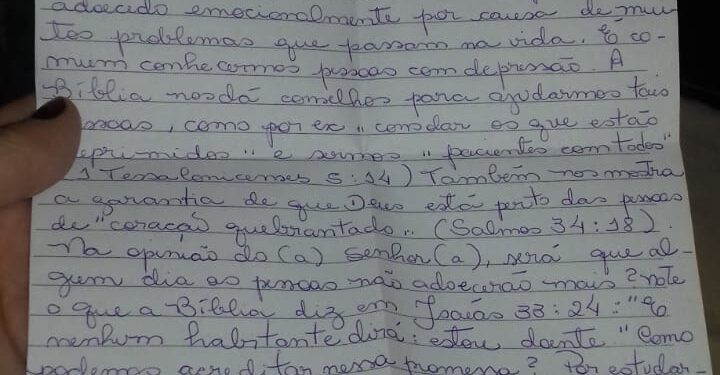 adoecido emocionalmente por causa de mui-
tos problemas que passam na vida. É co-
mum conhecermos pessoas com depressão. A
Bíblia nos dá conselhos para ajudarmos tais
essoas, como por ex "consolar os que estão
eprimidos" e sermos "pacientes com todos"
1 Tessalonicenses 5:14) Também nos mostra
a garantia de que Deus está perto das pessoas
de "coração quebrantado.. (Salmos 34:18).
Na opinião do(a) senhor(a), será que al-
gum dia as pessoas não adoecerão mais? note
o que a Bíblia diz em Isaías 33:24: "E
nenhum habitante dirá: estou doente" Como
podemos acreditar nessa promessa? Por estudar-